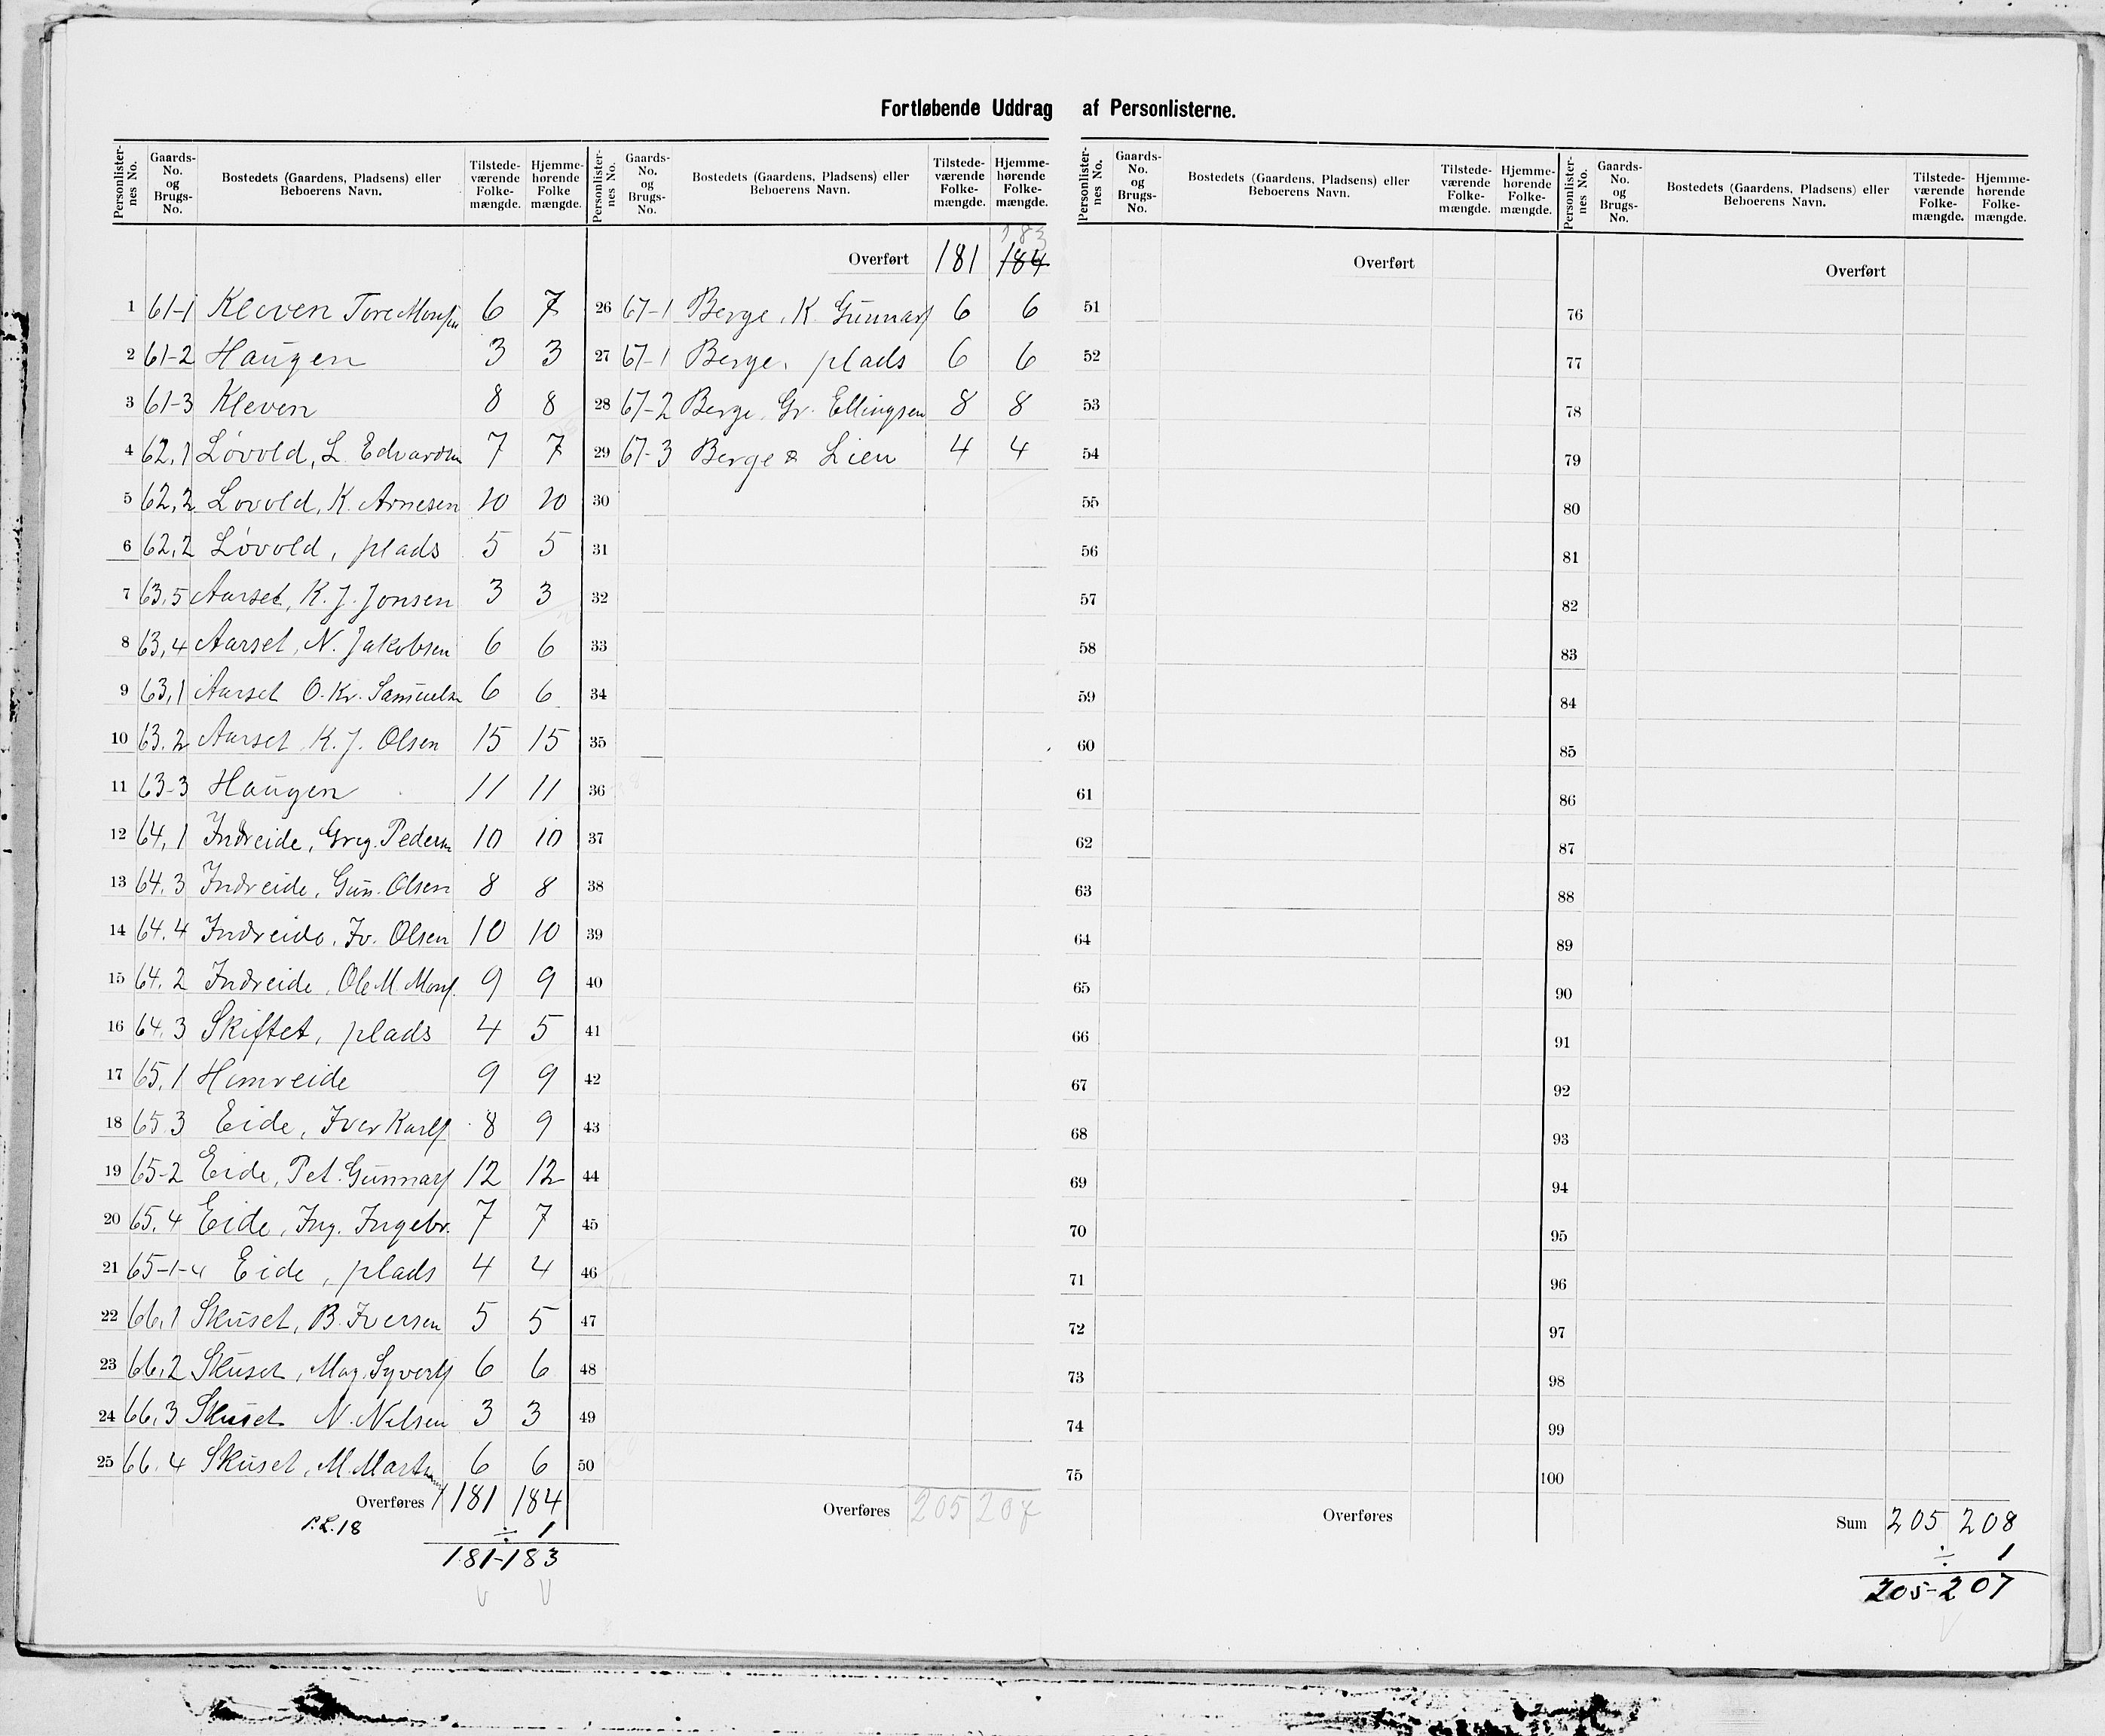 Fortløbende Uddrag af Personlisterne.
Personlister-nes No. Gaards-No. og Brugs-No. Bostedets (Gaardens, Pladsens) eller Beboerens Navn. Tilstede-værende Folke-mængde. Hjemme-hørende Folke mængde.
1 61-1 Kleven Tore Monsen 6 7
2 61-2 Haugen 3 3
3 61-3 Kleven 8 8
4 62,1 Løvold, L Edvardsen 7 7
5 62,2 Lovold, K. Arnesen 10 10
6 62,2 Løvold, plads 5 5
7 63,5 Aarset, K. J. Jonsen 3 3
8 63,4 Aarset, N. Jakobsen 6 6
9 63,1 Aarset O. Kr. Samuelsn 6 6
10 63.2 Aarset K. J. Olsen 15 15
11 63-3 Haugen 11 11
12 64,1 Indreide, Greg. Pedersn 10 10
13 64.3 Indreide, Gun. Olsen 8 8
14 64.4 Indreide, Iv. Olsen 10 10
15 64.2 Indreide, Ole M. Mons. 9 9
16 64.3 Skiftet, plads 4 5
17 65.1 Himreide 9 9
18 65.3 Eide, Iver Karls 8 9
19 65-2 Eide, Pet. Gunnars 12 12
20 65.4 Eide, Ing. Ingebr. 7 7
21 65-1-4 Eide, plads 4 4
22 66,1 Skuset, B. Iversen 5 5
23 66,2 Skuset, Mag. Syverts 6 6
24 66,3 Skuset N. Nilsen 3 3
25 66.4 Skuset, M. Martn 6 6
Overføres 181 184
P.L. 18 ÷ 1
181-183
Personlister-nes No. Gaards-No. og Brugs-No. Bostedets (Gaardens, Pladsens) eller Beboerens Navn. Tilstede-værende Folke-mængde. Hjemme-hørende Folke-mængde.
183
Overført 181 184
26 67-1 Berge, K. Gunnars 6 6
27 67-1 Berge, plads 6 6
28 67-2 Berge, Gr. Ellingsen 8 8
29 67-3 Berge & Lien 4 4
30
31
32
33
34
35
36
37
38
39
40
41
42
43
44
45
46
47
48
49
50
Overføres 205 207
Personlister-nes No. Gaards-No. og Brugs-No. Bostedets (Gaardens, Pladsens) eller Beboerens Navn. Tilstede-værende Folke-mængde. Hjemme-hørende Folke-mængde.
Overført
51
52
53
54
55
56
57
58
59
60
61
62
63
64
65
66
67
68
69
70
71
72
73
74
75
Overføres
Personlister-nes No. Gaards-No. og Brugs-No. Bostedets (Gaardens, Pladsens) eller Beboerens Navn. Tilstede-værende Folke-mængde. Hjemme-hørende Folke-mængde.
Overført
76
77
78
79
80
81
82
83
84
85
86
87
88
89
90
91
92
93
94
95
96
97
98
99
100
Sum 205 208
÷ 1
205-207